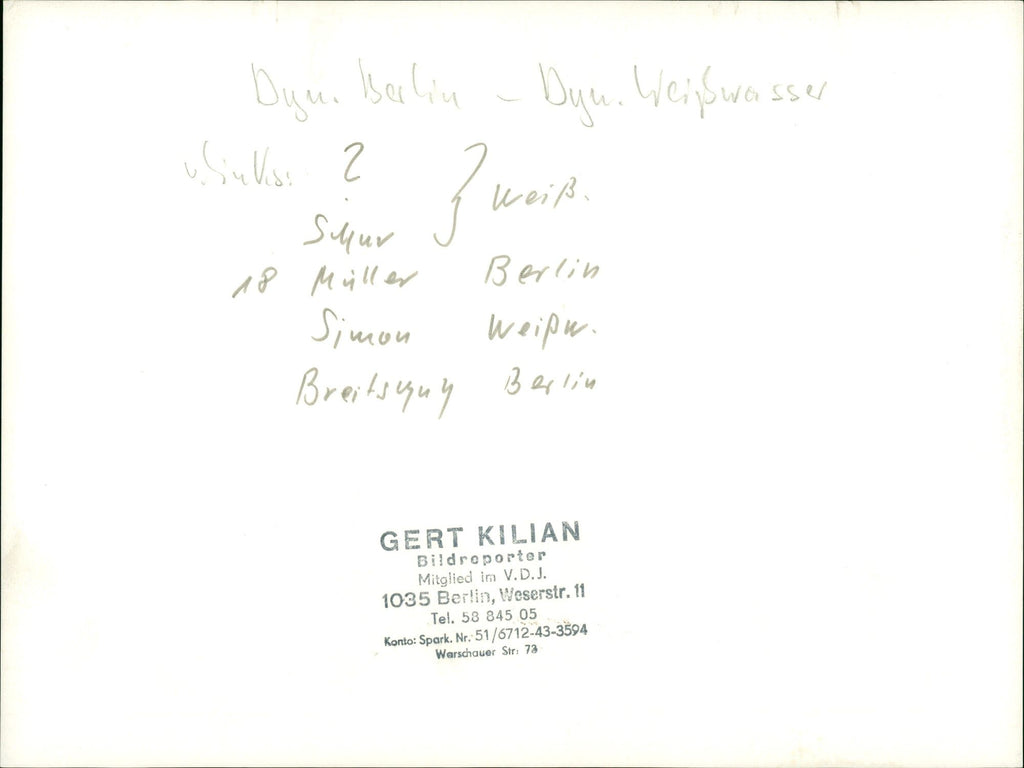 Dyn. Berlin – Dyn. Weißwasser
v. links: ? } Weiß.
Schur
18 Müller Berlin
Simon Weißw.
Berlin
GERT KILIAN
Bildreporter
Mitglied im V.D.J.
1035 Berlin, Weserstr. 11
Tel. 58 845 05
Konto: Spark. Nr. 51/6712-43-3594
Warschauer Str. 73